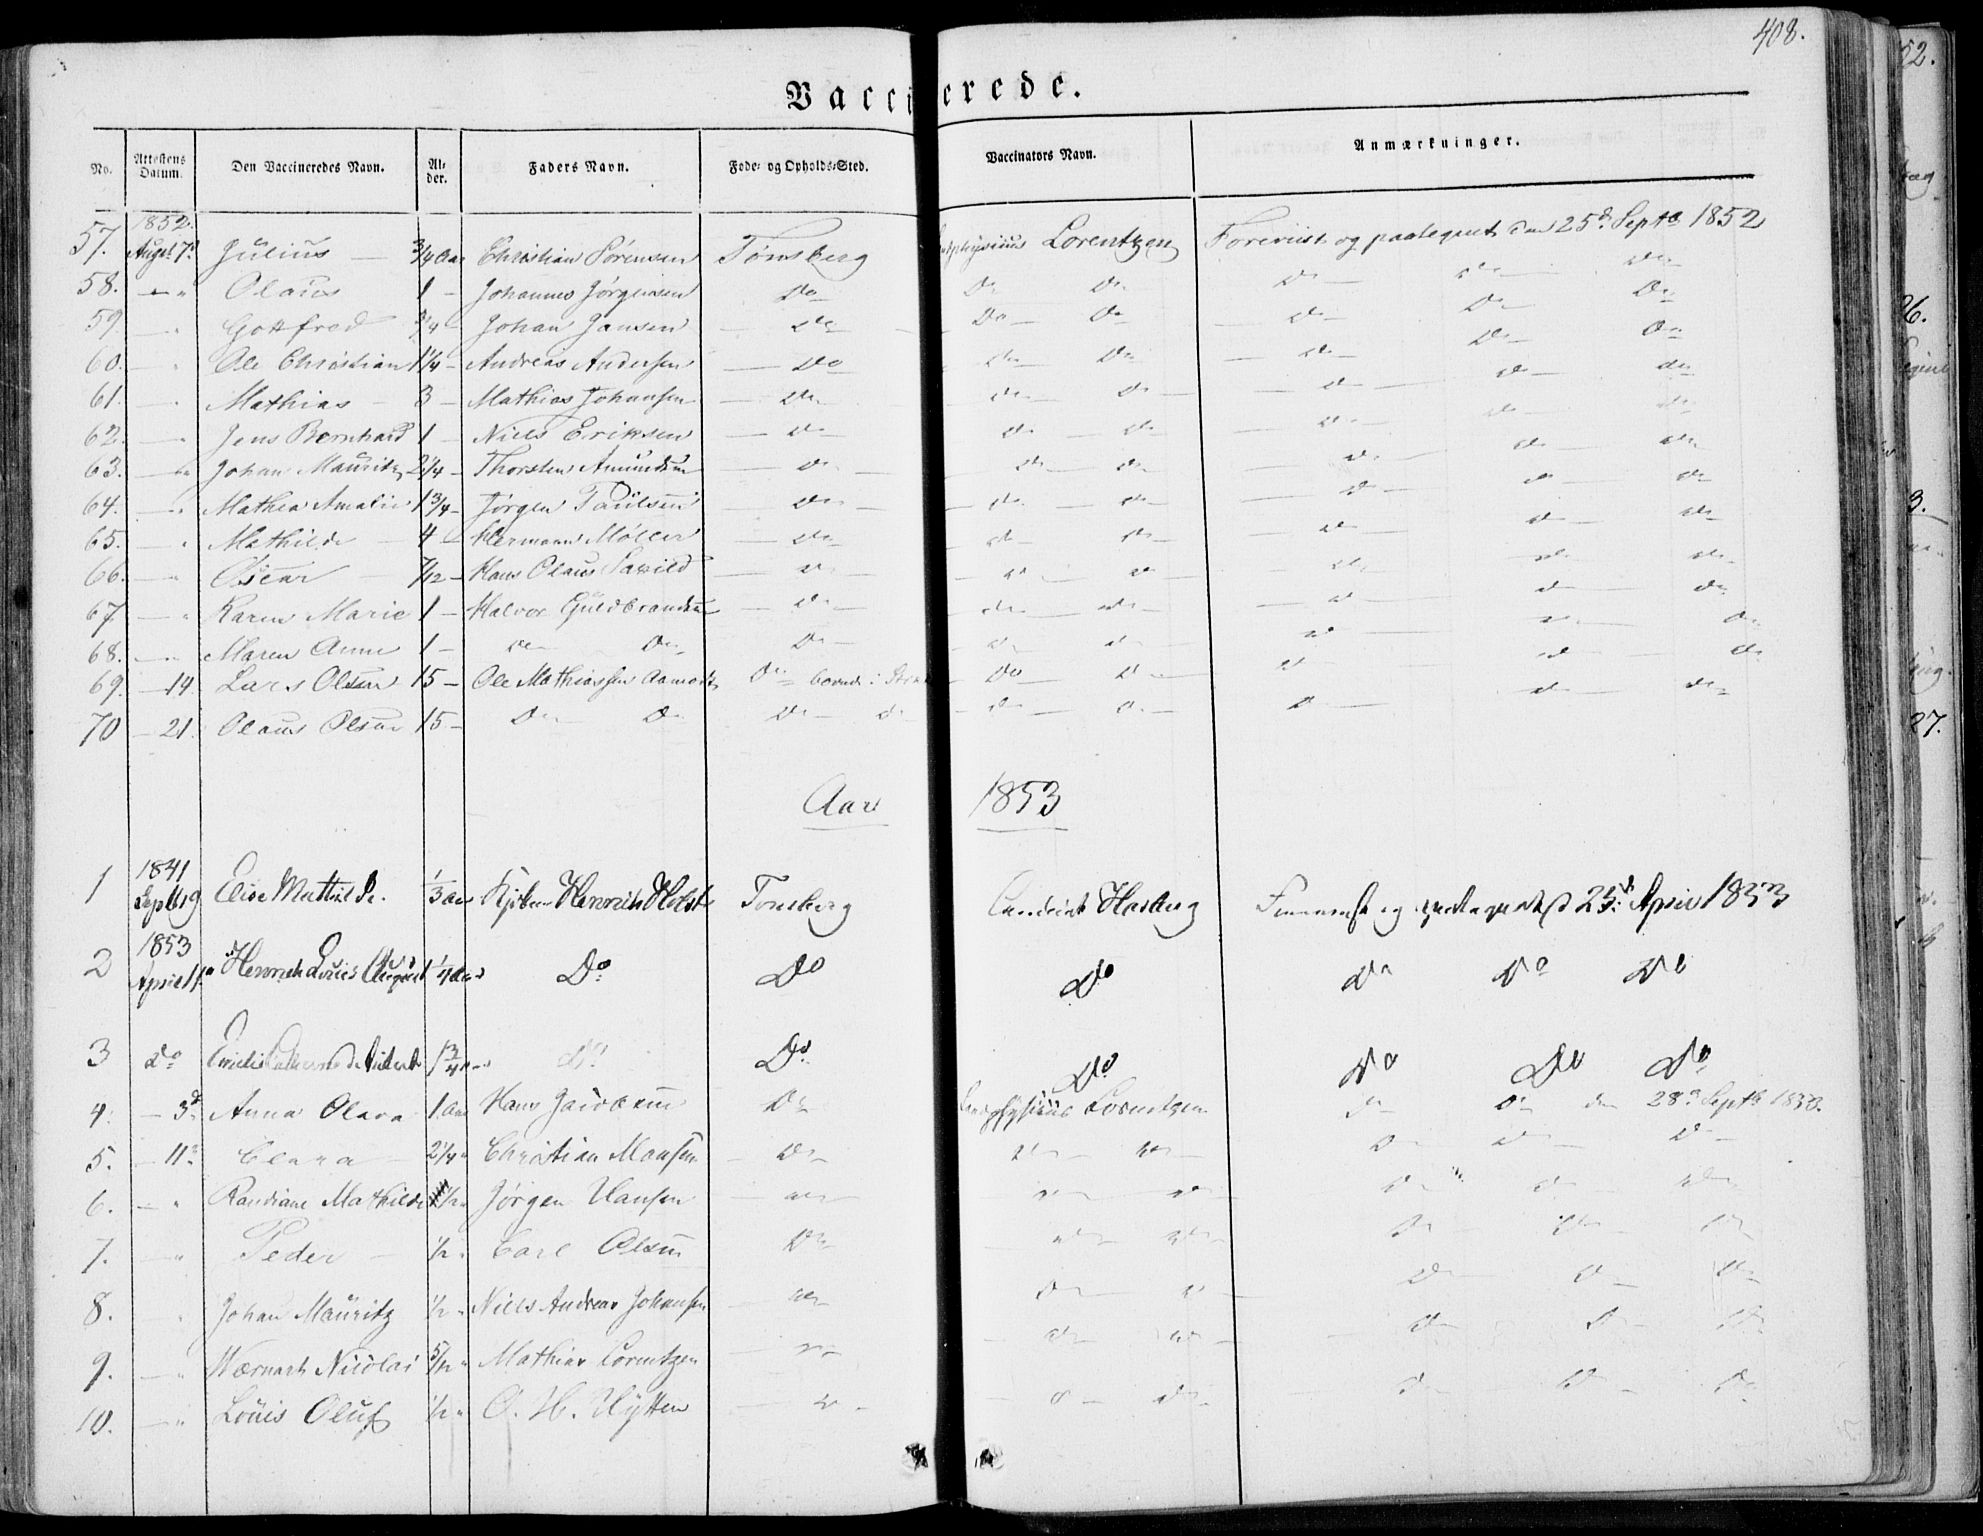 408.
Vaccinerede.
No. Attestens Datum. Den Vaccineredes Navn. Al-der. Faders Navn. Føde- og Opholds-Sted. Vaccinators Navn. Anmærkninger.
1852.
57. Augst 7d Julius — 3/4 Aar Christian Sørensen Tønsberg Lorentzen Foreviist og paategnet den 25d Septbr 1852
58. — " Olaus 1 — Johannes Jørgensen Do Do Do Do Do Do
59. — " Gottfred 3/4 — Johan Jansen Do Do Do Do Do Do
60. — " Ole Christian 1 1/4 — Andreas Andersen Do Do Do Do Do Do
61. — " Mathias — 3 — Mathias Johansen Do Do Do Do Do Do
62. — " Jens Bernhard 1 — Niels Eriksen Do Do Do Do Do Do
63. — " Johan Mauritz 2 1/4 — Thorsten Amundsen Do Do Do Do Do Do
64. — " Mathea Amalie 1 3/4 — Jørgen Paulsen Do Do Do Do Do Do
65. — " Mathilde 4 — Hermann Møller Do Do Do Do Do Do
66. — " Oscar 7/12 — Hans Olaus Do Do Do Do Do Do
67. — " Karen Marie 1 — Halvor Guldbrandsen Do Do Do Do Do Do
68. — " Maren Anne 1 — Do Do Do Do Do Do Do Do
69. — 14. Lars Olsen 15 — Ole Mathiassen Do boende i Do Do Do Do Do
70 — 21. Olaus Olsen 15 — Do Do Do Do Do Do Do Do Do
Aar 1853
1841
1 Septb 19 Elise Mathilde. 1/3 Aar Henrich Holst Tønsberg Candidat og paategnet d 25d April 1853
1853
2 April 1 Henrich Louis August 1/4 Aar Do Do Do Do Do Do
3 do 1 3/4 Do Do Do Do Do Do
4. — 3d Anna Olava 1 Aar Hans Jacobsen Do Landphysicus Lorentzen Do Do den 28d Septb 1853.
5. — 11d Clara — 2 1/4 " Christian Monsen Do Do Do Do Do Do
6. — " Randiane Mathilde 1/2 " Jørgen Hansen Do Do Do Do Do Do
7. — " Peder — 1/2 " Carl Olsen Do Do Do Do Do Do
8. " Johan Mauritz 1/2 " Niels Andreas Johansen Do Do Do Do Do Do
9. — " Nicolai 5/12 " Mathias Lorentzen Do Do Do Do Do Do
10. — " Louis Oluf 1/2 " O. H. Hytten Do Do Do Do Do Do